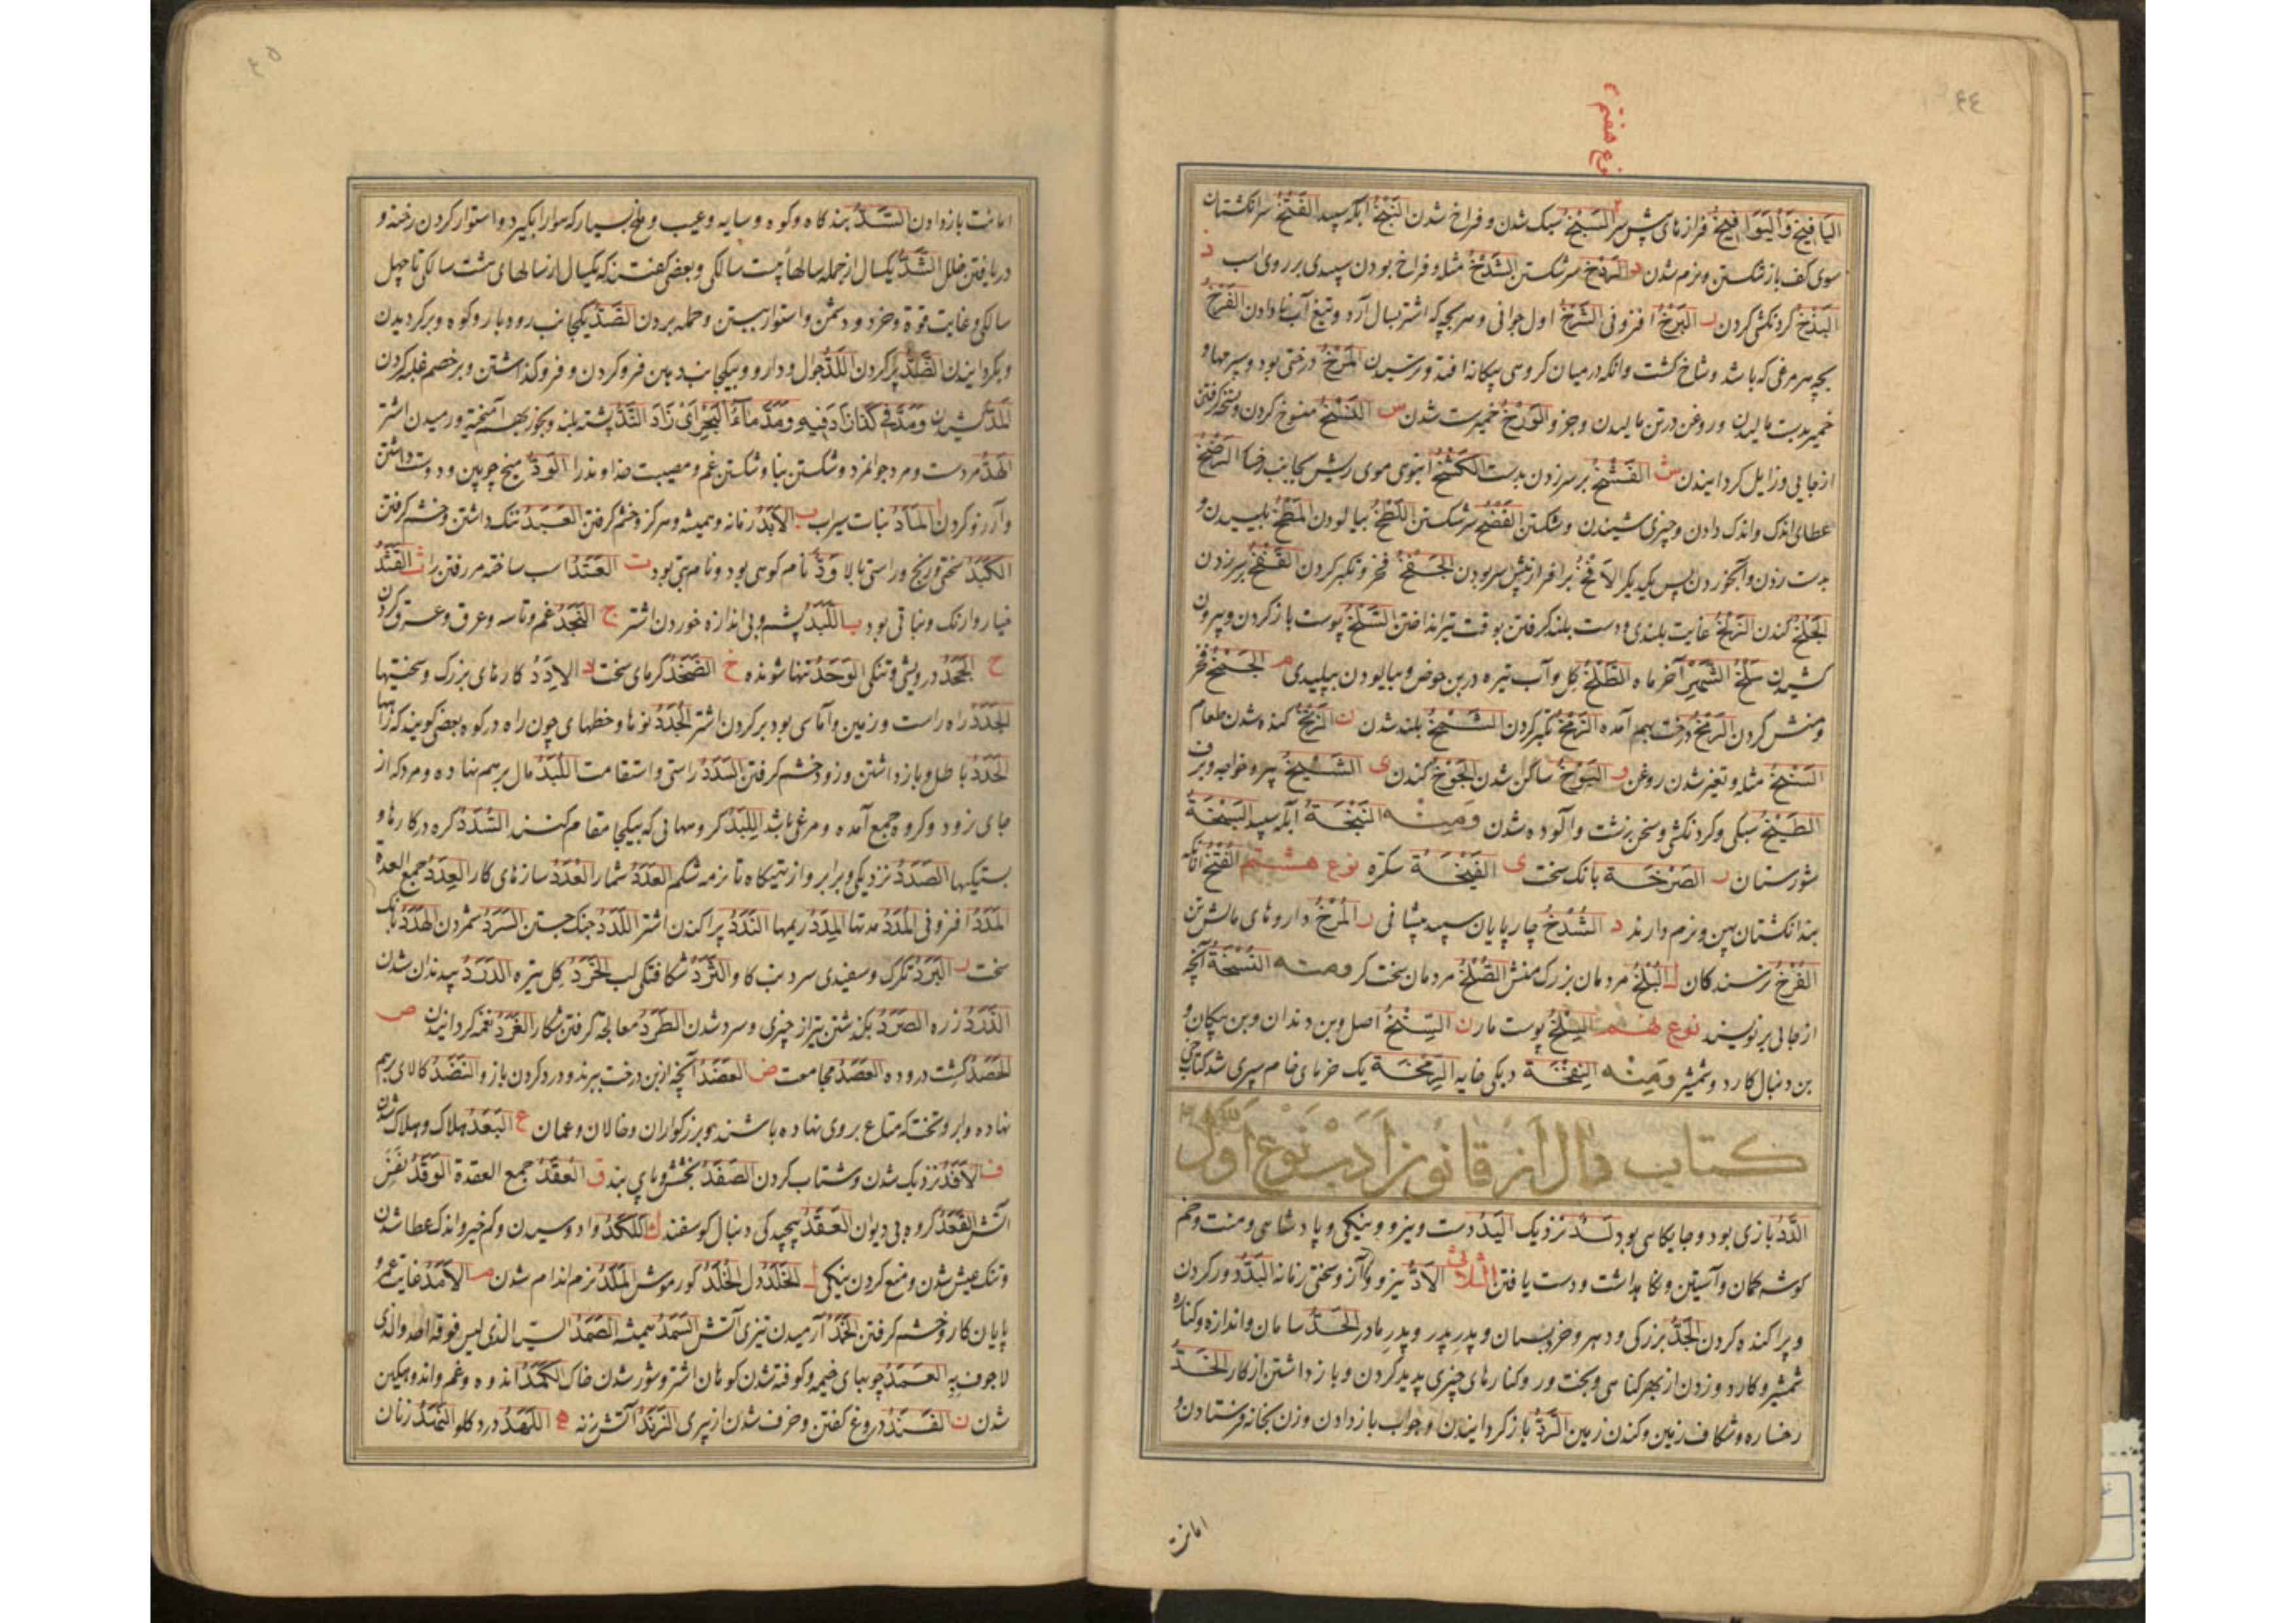 ٤٤
نوع هفتم
الیافیخ والیوافیخ فرازهای پیش سر السبخ سبک شدن و فراخ شدن النبخ آبله سپید الفتخ سر انگشتان
سوی کف باز شکستن و نرم شدن د الردخ سر شکستن الشدخ مثله و فراخ بودن سپیدی بر روی اسب ذ
البذخ گردنکشی کردن ر البرخ افزونی الشرخ اول جوانی و هر بچه که اشتر بسال آرد و تیغ آب نا دادن الفرخ
بچه هر مرغی که باشد و شاخ کشت و آنکه در میان گروهی بیگانه افتد و ترسیدن المرخ درختی بود و
خمیر بدست مالیدن و روغن در تن مالیدن و جز و الورخ خمیر ست شدن س النسخ منسوخ کردن و نسخه گرفتن
از جایی و زایل گردانیدن ش الفشخ بر سر زدن بدست الکشخ انبوهی موی ریش بجانب رخسار الرضخ
عطای اندک و اندک دادن و چیزی شنیدن و شکستن الفضخ سر شکستن اللطخ بیالودن المطخ بلیسیدن و
بدست زدن و آب خوردن پس یکدیگر الافخ بر افراز پیش سر بودن الجفخ فخر و تکبر کردن القفخ بر سر زدن
الجلخ کندن الزلخ غایت بلندی و دست بلند گرفتن بوقت تیر انداختن السلخ پوست باز کردن و بیرون
کشیدن سلخ الشهر آخر ماه الطلخ گل و آب تیره در بن حوض و بیالودن بپلیدی م الجمخ فخر
و منش کردن الرمخ درخت بهم آمده الزمخ تکبر کردن الشمخ بلند شدن ن الزنخ کنده شدن طعام
السنخ مثله و تغیر شدن روغن و البوخ ساکن شدن الجوخ کندن ی الشیخ پیر و خواجه و برف
الطیخ سبکی و گردنکشی و سخن زشت و آلوده شدن ومنه النبخة آبله سپید السبخة
شورستان ر الصرخة بانک سخت ی الفیخة سکره نوع هشتم الفتخ آنکه
بند انگشتان پهن و نرم دارند د الشدخ چارپایان سپید پیشانی ر المرخ داروهای مالش تن
الفرخ ترسندگان ل البلخ مردمان بزرگ منش الصلخ مردمان سخت کر ومنه النسخة آنچه
از جائی بر نویسند نوع نهم السلخ پوست مار ن السنخ اصل و بن دندان و بن پیکان و
بن دنبال کارد و شمشیر ومنه النفخة دیگی خایه الرمخة یک خرمای خام سپری شد کتاب خی
کتاب دال از قانون ادب نوع اول
الدد بازی بود و جایگاهی بود لد نزدیک الید دست و نیرو و نیکی و پادشاهی و منت و خم
گوشه کمان و آستین و نگاهداشت و دست یافتن الثلاثی الاد نیرو و آز و سختی زمانه البد دور کردن
و پراکنده کردن الجد بزرگی و بهر و خرد بسمان و پدر پدر و پدر مادر الحد سامان و اندازه و کناره
شمشیر و کارد و زدن از بهر گناهی و بخت ور و کنارهای چیزی پدید کردن و باز داشتن از کار الخد
رخساره و شکاف زمین و کندن زمین الرد باز گردانیدن و جواب باز دادن و زن بخانه فرستادن و
امانت
٤٥
امانت باز دادن السد بند کاه و کوه و سایه و عیب و ملخ بسیار که هوا را بگیرد و استوار کردن رخنه و
دریافتن خلل الشد یکسال از جمله سالها بیست سالگی و بعضی گفتند که یکسال از سالهای هشت سالگی تا چهل
سالگی و غایت قوة و خرد و دشمن و استوار ببستن و حمله بردن الصد یکجانب رودبار و کوه و برگردیدن
و بگردانیدن الضد پر کردن اللد جوال و دارو و بیکجانب دهن فرو کردن و فرو گذاشتن و بر خصم غلبه کردن
المد کشیدن ومد فی کذا زاد فیه ومد ماء البحر ای زاد الند پشته بلند و بخور بهم آمیخته و رمیدن اشتر
الهد مرد ست و مرد جوانمرد و شکستن بنا و شکستن غم و مصیبت خداوند را الود میخ چوبین و دوست داشتن
و آرزو کردن ا الماد نبات سیراب ب الابد زمانه و همیشه و هرگز و خشم گرفتن العبد ننگ داشتن و خشم گرفتن
الکبد سختی و رنج و راستی بالا ودّ نام کوهی بود و نام بتی بود ت العتد اسب ساخته مر رفتن را ث القثد
خیار وارنک و نباتی بود ب اللبد پشم و بی اندازه خوردن اشتر ج النجد غم و تاسه و عرق و عرق کردن
ح الجحد درویشی و تنگی الوحد تنها شونده خ الصخد گرمای سخت د الادد کارهای بزرگ و سختیها
الجدد راه راست و زمین و آماسی بود بر گردن اشتر الجدد نوها و خطهای چون راه در کوه بعضی گویند که راهها
الحدد باطل و باز داشتن و زود خشم گرفتن السدد راستی و استقامت اللبد مال بر هم نهاده و مرد که از
جای نرود و گروه جمع آمده و مرغی باشد اللبد گروهانی که بیکجا مقام کنند الشدد گره در کارها و
بستگیها الصدد نزدیکی و برابر و از تهیگاه تا نرمه شکم العدد شمار العدد سازهای کار العدد جمع العدة
المدد افزونی المدد مدتها المدد ریمها الندد پراکندن اشتر اللدد جنک جستن السرد شمردن الهدد بانک
سخت ر البرد تگرگ و سفیدی سر دنب کاو الثرد شکافتگی لب الخرد گل تیره الدرد بیدندان شدن
الزرد زره الصرد بگذشتن تیر از چیزی و سرد شدن الطرد معالجه گرفتن شکار الغرد نغمه گردانیدن ص
الحصد کشت دروده العصد مجامعت ض العضد آنچه از بن درخت ببرند و درد کردن بازو النضد کالای بر هم
نهاده و ابر و تخت که متاع بر وی نهاده باشند و بزرگواران و خالان و عمان ع البعد هلاک و هلاک شدن
ف الافد نزدیک شدن و شتاب کردن الصفد بخشش و پای بند ق العقد جمع العقدة الوقد نفس
آتش القعد گروه بی دیوان العقد پیچیدگی دنبال گوسفند ك اللکد وا دوسیدن و کم خیر و اندک عطا شدن
و تنک عیش شدن و منع کردن نیکی ل الخلد دل الخلد گور موش الملد نرم اندام شدن م الامد غایت عمر و
پایان کار و خشم گرفتن الخمد آرمیدن تیزی آتش السمد همیشه الصمد السید الذی لیس فوقه احد والذی
لا جوف به العمد چوبهای خیمه و کوفته شدن کوهان اشتر و شور شدن خاک الکمد اندوه و غم و اندوهگین
شدن ن الفند دروغ گفتن و خرف شدن از پیری الزند آتش زنه ه اللهد درد گلو النهد زنان